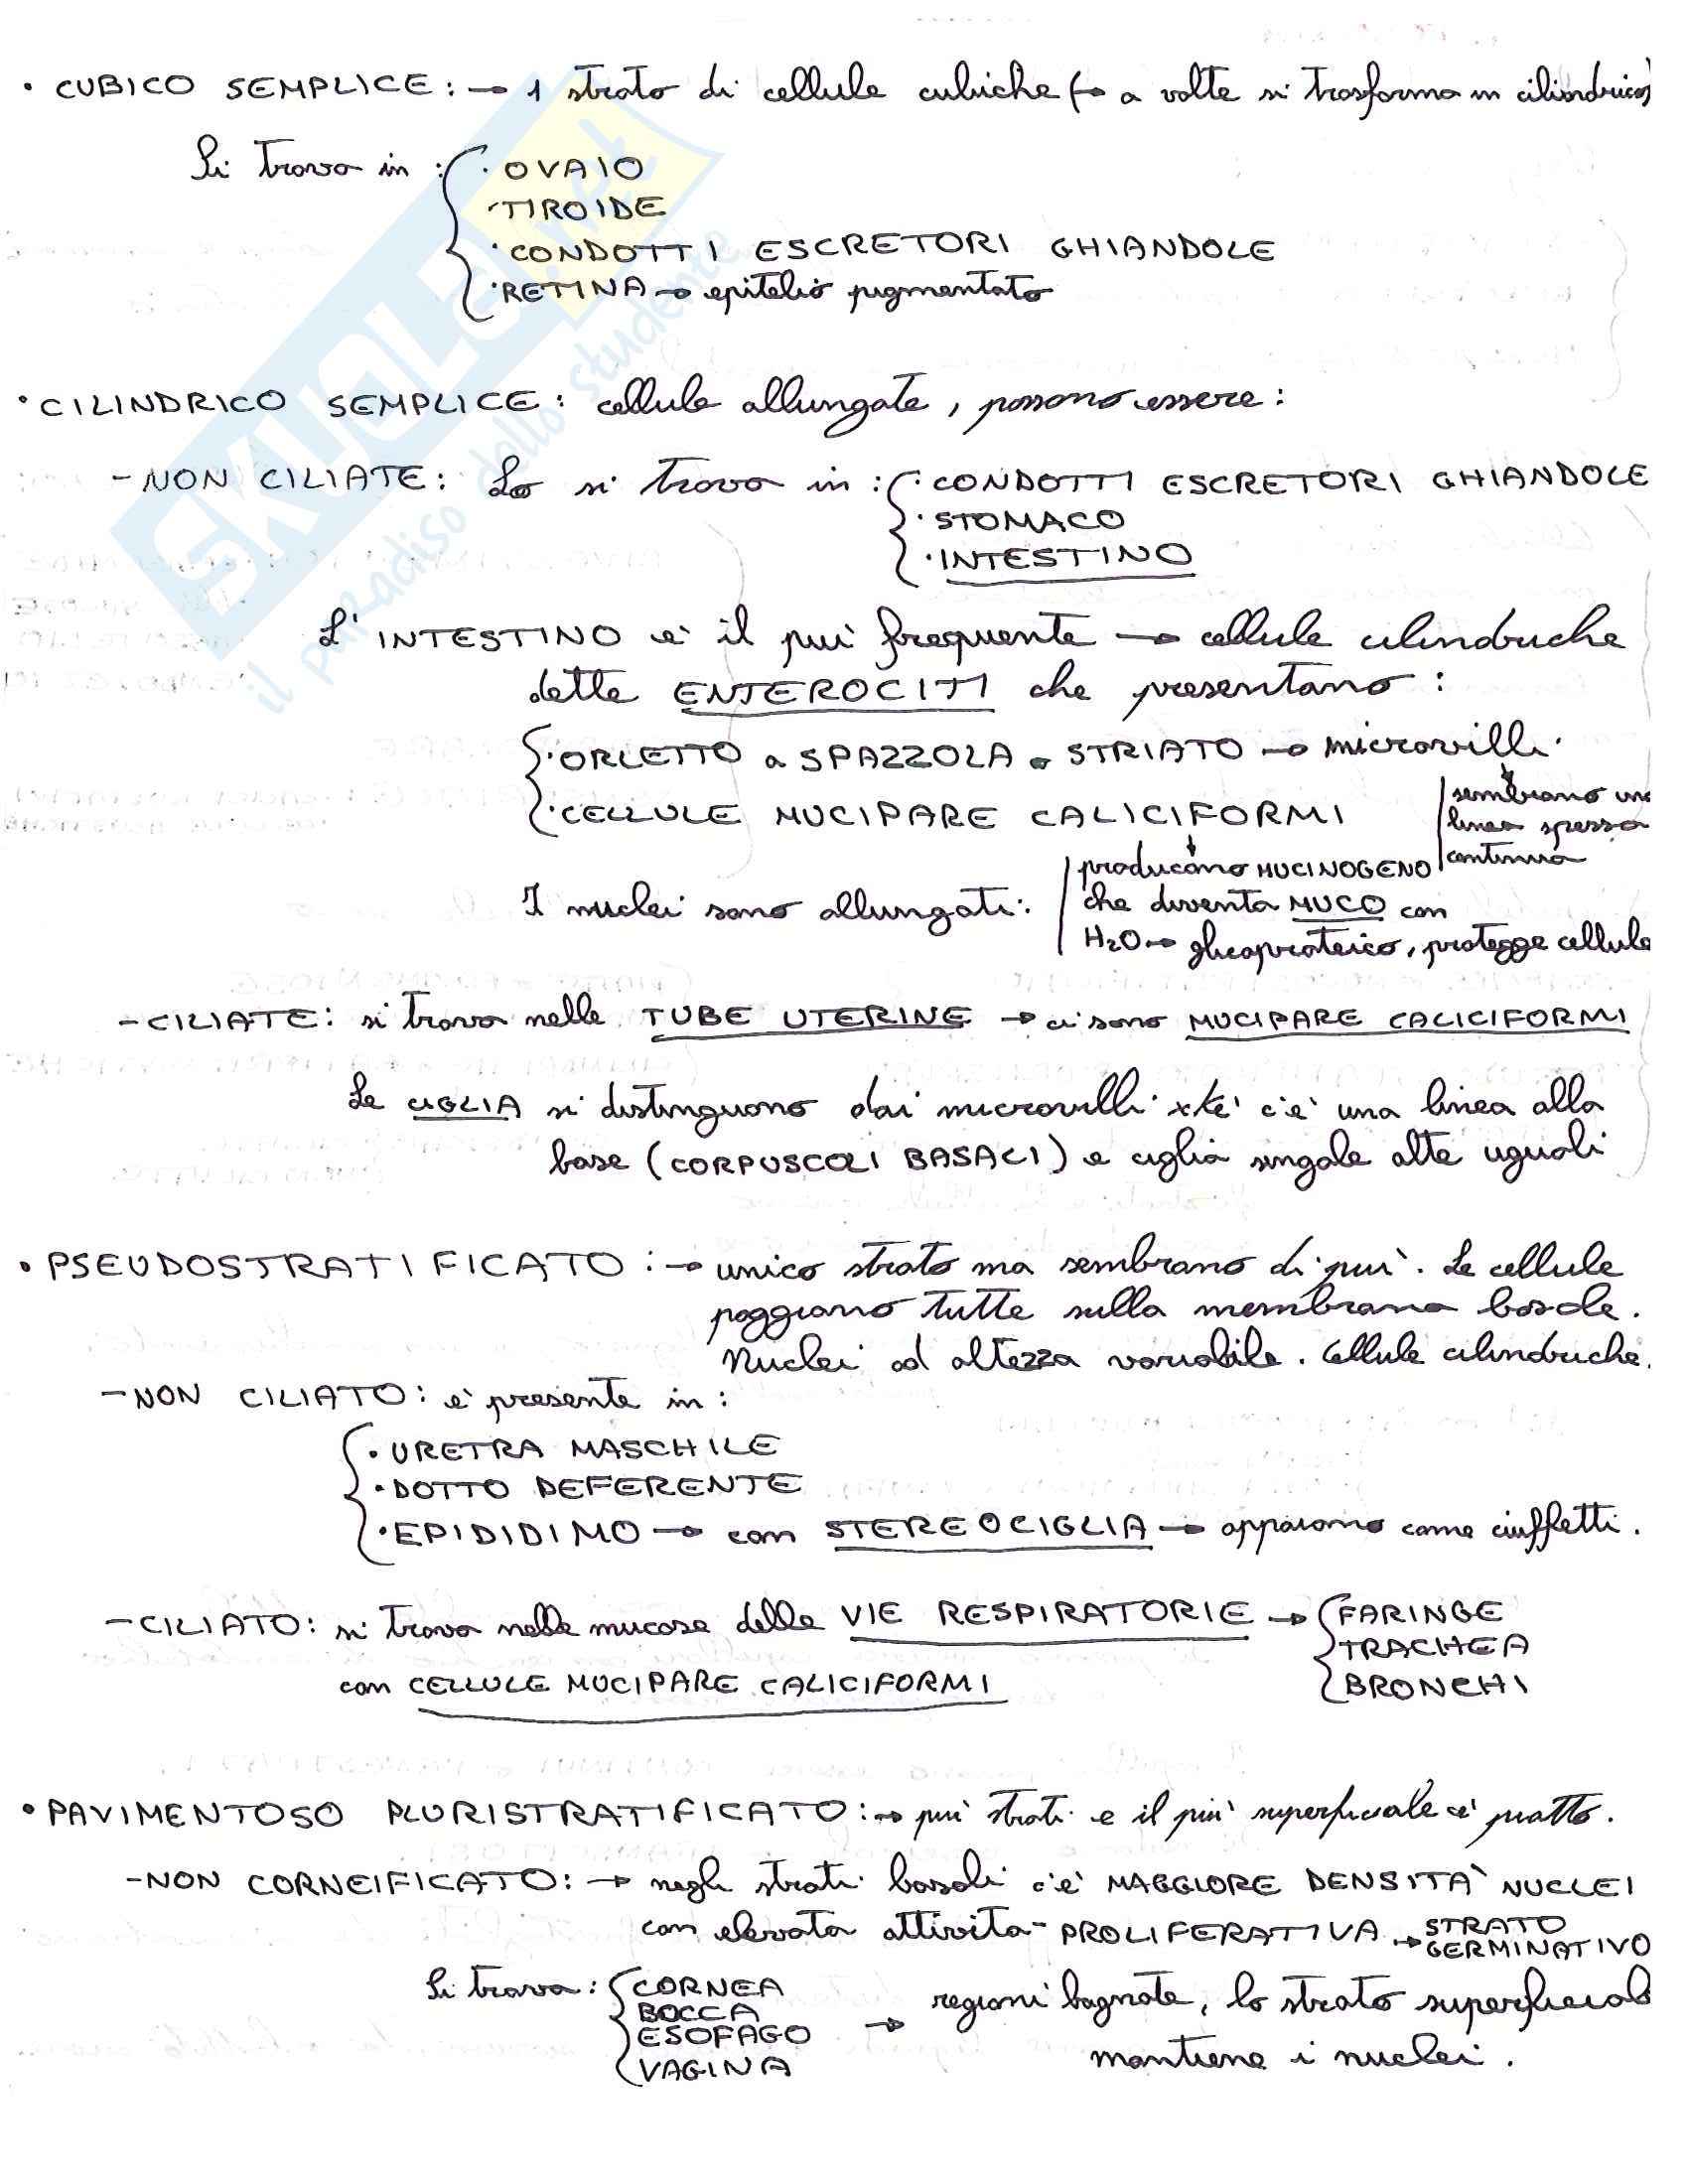 • CUBICO SEMPLICE: → 1 strato di cellule cubiche (→ a volte si trasforma in cilindrico)
Si trova in: { · OVAIO
· TIROIDE
· CONDOTTI ESCRETORI GHIANDOLE
· RETINA → epitelio pigmentato
• CILINDRICO SEMPLICE: cellule allungate, possono essere:
- NON CILIATE: Lo si trova in: { · CONDOTTI ESCRETORI GHIANDOLE
· STOMACO
· INTESTINO
L'INTESTINO è il più frequente → cellule cilindriche
dette ENTEROCITI che presentano:
{ · ORLETTO a SPAZZOLA o STRIATO → microvilli.
sembrano una
· CELLULE MUCIPARE CALICIFORMI
linea spessa
continua
producono MUCINOGENO
I nuclei sono allungati.
che diventa MUCO con
H₂O → glicoproteico, protegge cellule
- CILIATE: si trova nelle TUBE UTERINE → ci sono MUCIPARE CALICIFORMI
Le CIGLIA si distinguono dai microvilli xké c'è una linea alla
base (CORPUSCOLI BASALI) e ciglia singole alte uguali
• PSEUDOSTRATIFICATO: → unico strato ma sembrano di più. Le cellule
poggiano tutte sulla membrana basale.
Nuclei ad altezza variabile. Cellule cilindriche.
- NON CILIATO: è presente in:
{ · URETRA MASCHILE
· DOTTO DEFERENTE
· EPIDIDIMO → con STEREOCIGLIA → appaiono come ciuffetti.
- CILIATO: si trova nelle mucose delle VIE RESPIRATORIE → { FARINGE
TRACHEA
con CELLULE MUCIPARE CALICIFORMI
BRONCHI
• PAVIMENTOSO PLURISTRATIFICATO: → più strati e il più superficiale è piatto.
- NON CORNEIFICATO: → negli strati basali c'è MAGGIORE DENSITÀ NUCLEI
con elevata attività PROLIFERATIVA → STRATO GERMINATIVO
Si trova: { CORNEA
BOCCA
ESOFAGO
VAGINA
→ regioni bagnate, lo strato superficiale
mantiene i nuclei.
SKUOLA.net
il paradiso dello studente